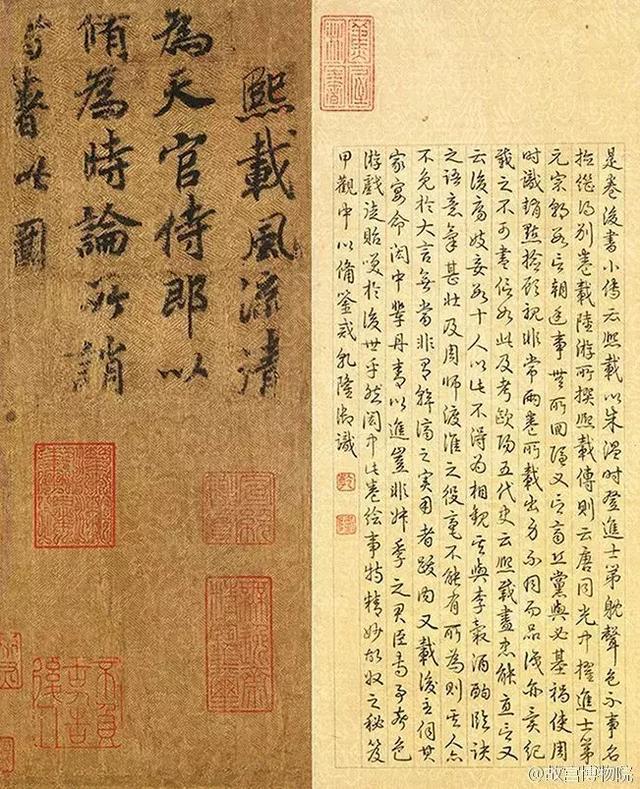 熙載風流清
為天官侍郎以
脩為時論所誚
書此圖
是卷後書小傳云熙載以朱溫時登進士第躭聲色不事名
撿繼得別卷載陸游所撰熙載傳則云唐同光中擢進士第
元宗朝數言朝廷事無所回隱又言齊丘黨與必基禍使周
時識趙點撿顧視非常兩卷所載出身不同而品識亦異紀
載之不可盡信如此及考歐陽五代史云熙載盡忠能直言又
云後房妓妾數十人以此不得為相觀其與李穀酒酣臨訣
之語意氣甚壯及周師渡淮之役竟不能有所為則其人亦
不免於大言無當非有幹濟之實用者跋內又載後主伺其
家宴命閎中輩丹青以進豈非叔季之君臣專事聲色
游戲徒貽笑於後世乎然閎中此卷繪事特精妙故收之秘笈
甲觀中以備鑒戒乾隆御識
@故宫博物院